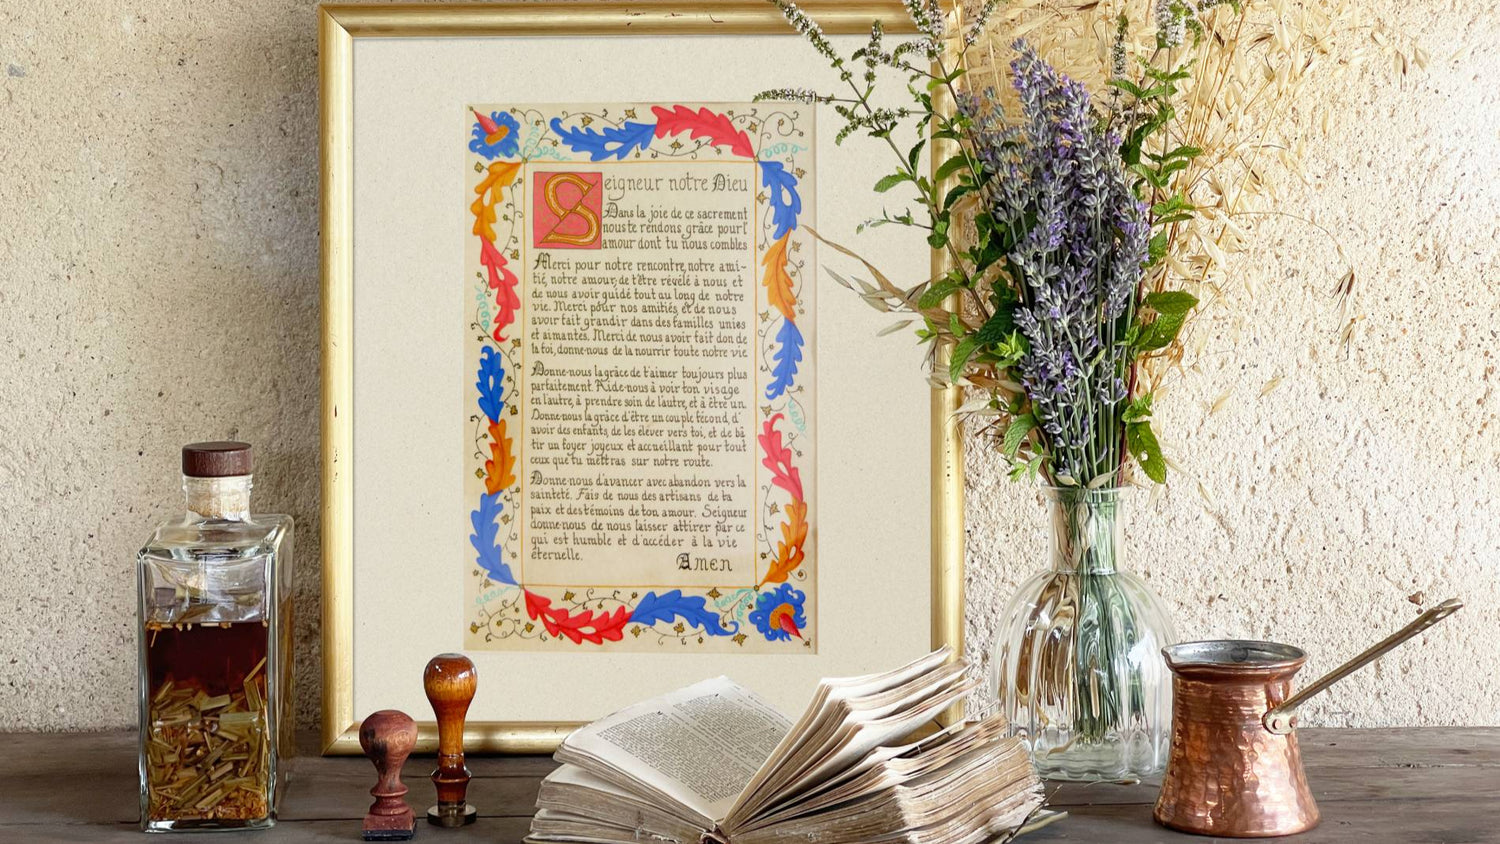 Seigneur notre Dieu
Dans la joie de ce sacrement
nous te rendons grâce pour l'
amour dont tu nous combles
Merci pour notre rencontre, notre ami-
tié, notre amour, de t'être révélé à nous et
de nous avoir guidé tout au long de notre
vie. Merci pour nos amitiés, et de nous
avoir fait grandir dans des familles unies
et aimantes. Merci de nous avoir fait don de
la foi, donne-nous de la nourrir toute notre vie
Donne-nous la grâce de t'aimer toujours plus
parfaitement. Aide-nous à voir ton visage
en l'autre, à prendre soin de l'autre, et à être un.
Donne-nous la grâce d'être un couple fécond, d'
avoir des enfants, de les élever vers toi, et de bâ
tir un foyer joyeux et accueillant pour tout
ceux que tu mettras sur notre route.
Donne-nous d'avancer avec abandon vers la
sainteté. Fais de nous des artisans de ta
paix et des témoins de ton amour. Seigneur
donne-nous de nous laisser attirer par ce
qui est humble et d'accéder à la vie
éternelle.
Amen